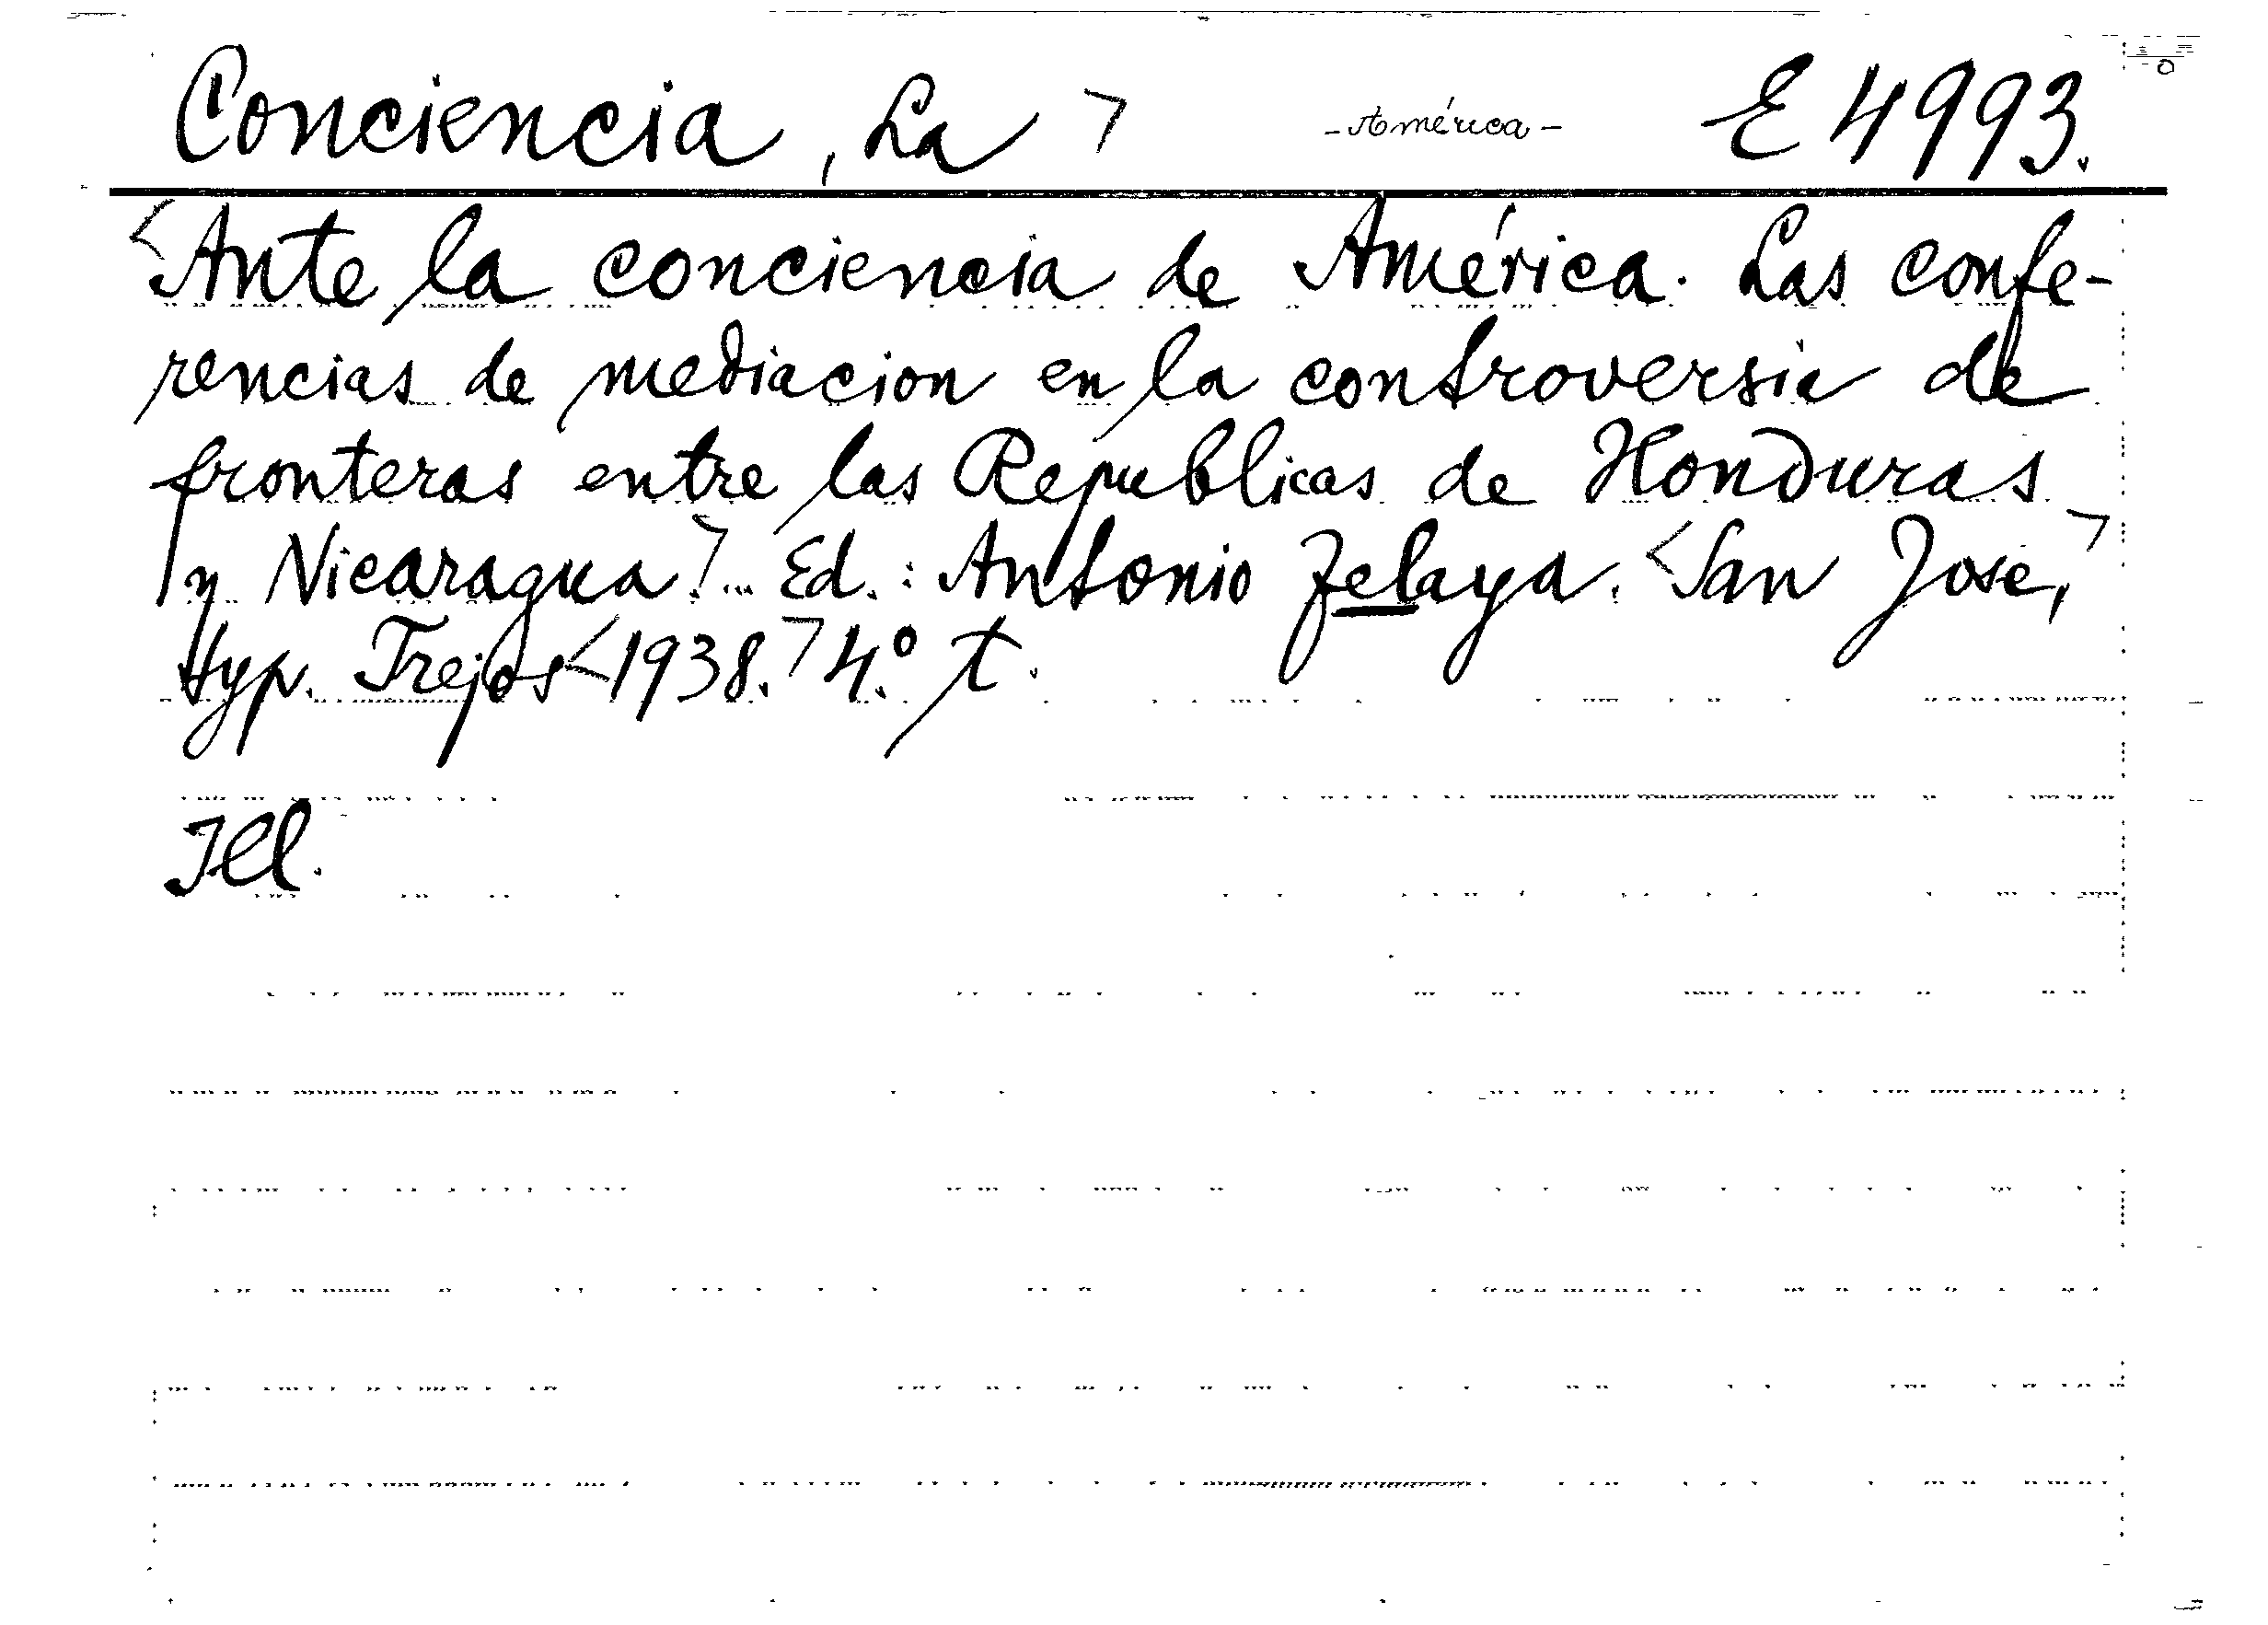 Conciencia, La > -América- E 4993.
<Ante la conciencia de América. Las confe-
rencias de mediacion en la controversia de
fronteras entre las Republicas de Honduras
y Nicaragua.>... Ed.: Antonio Zelaya. <San José,>
typ. Trejos <1938.> 4.° t.
Ill.